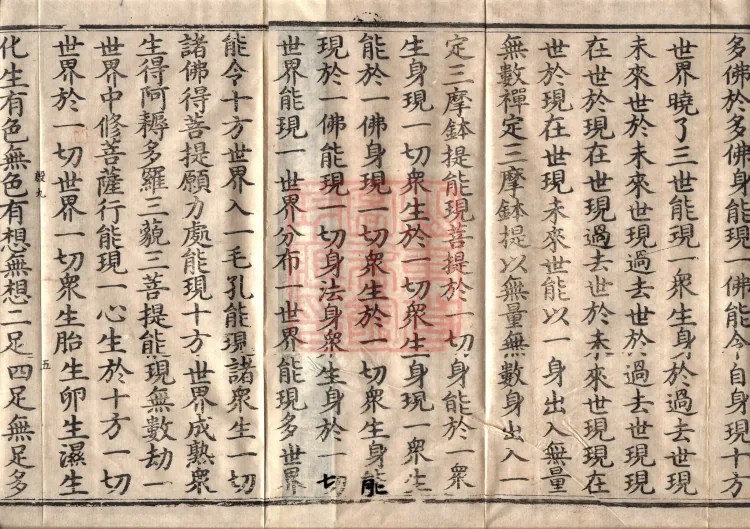 多佛於多佛身能現一佛能令自身現十方
世界曉了三世能現一衆生身於過去世現
未來世於未來世現過去世於過去世現現
在世於現在世現過去世於未來世現現在
世於現在世現未來世能以一身出入無量
無數禪定三摩鉢提以無量無數身出入一
定三摩鉢提能現菩提於一切身能於一衆
生身現一切衆生於一切衆生身現一衆生
能於一佛身現一切衆生於一切衆生身能
現於一佛能現一切身法身衆生身於一切
世界能現一世界分布一世界能現多世界
能令十方世界入一毛孔能現諸衆生一切
諸佛得菩提願力處能現十方世界成熟衆
生得阿耨多羅三藐三菩提能現無數劫一
世界中修菩薩行能現一心生於十方一切
世界於一切世界一切衆生胎生卵生濕生
殷九 五
化生有色無色有想無想二足四足無足多